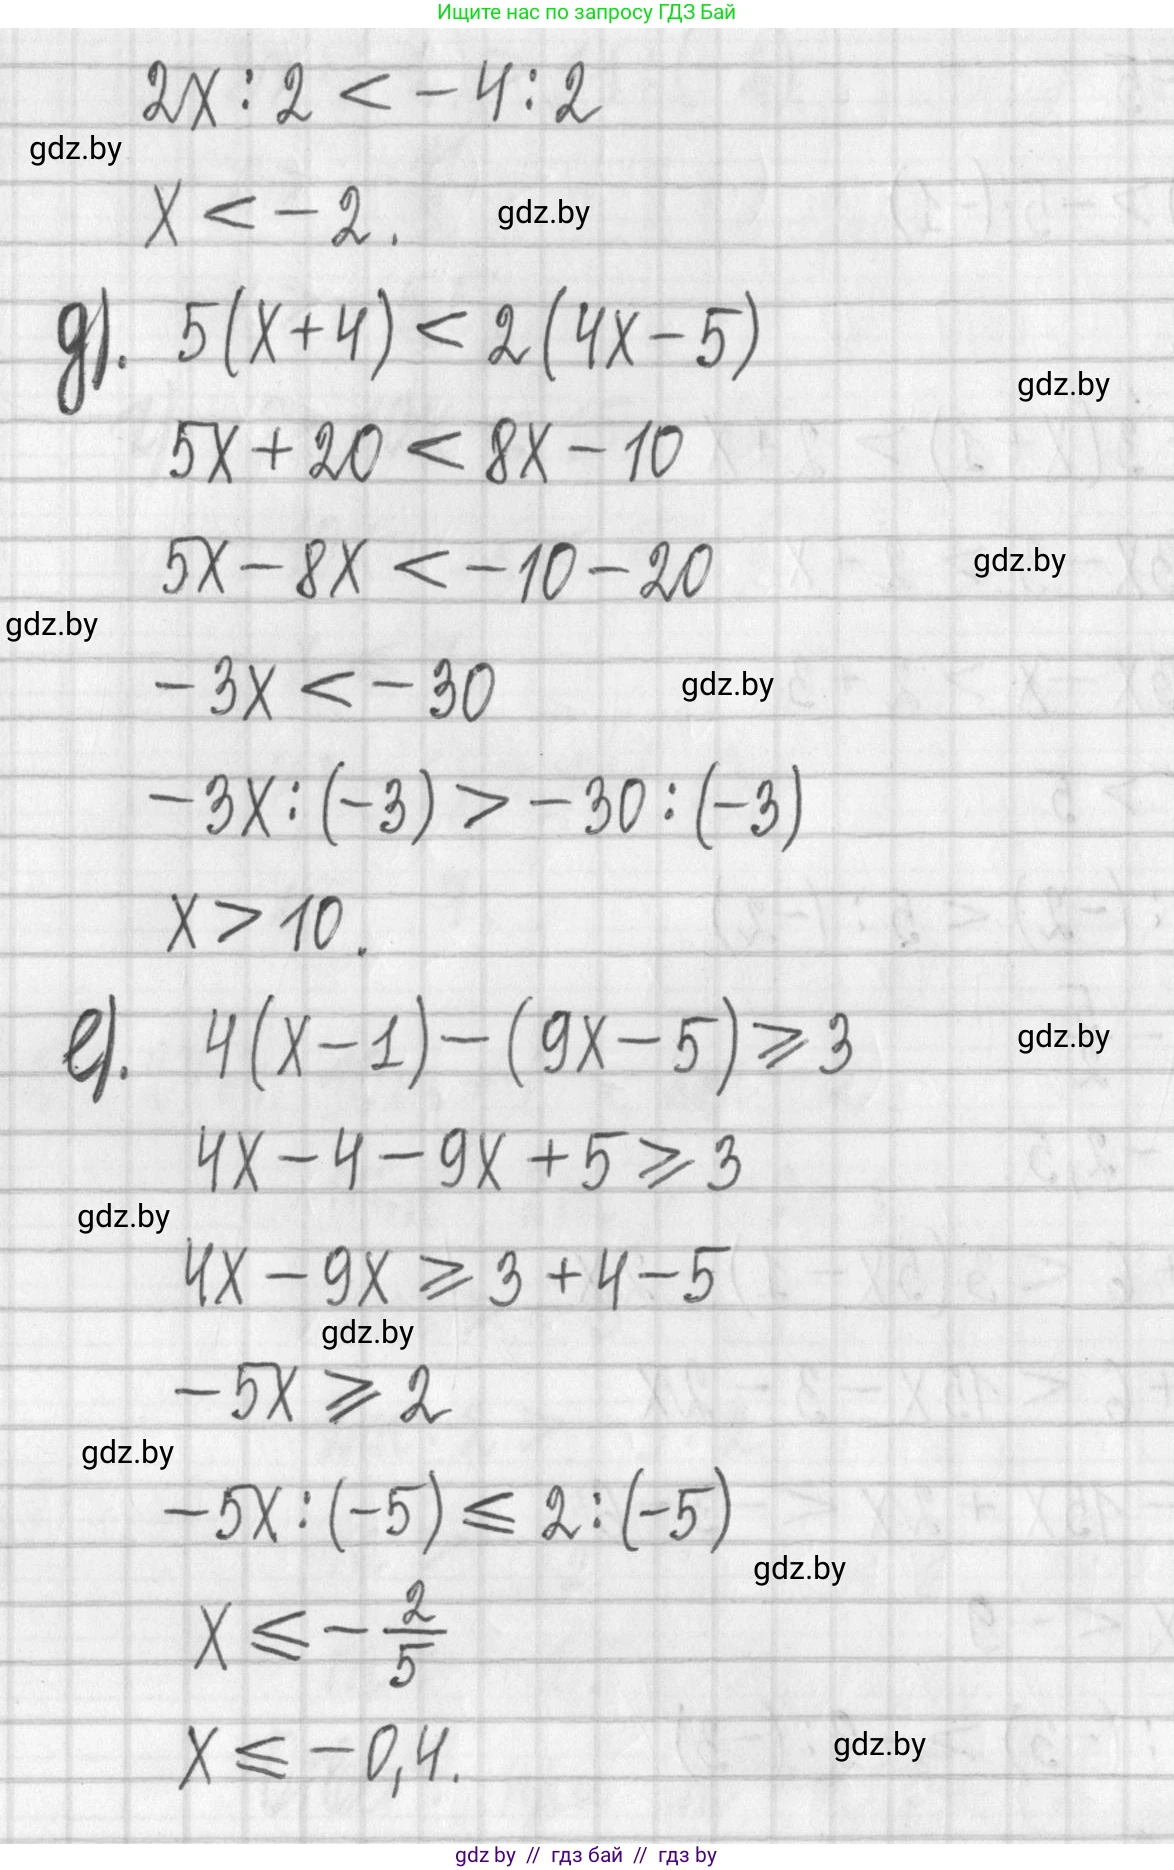 Ищите нас по запросу ГДЗ Бай
2x : 2 < - 4 : 2
gdz.by
x < - 2. gdz.by
д). 5(x+4) < 2(4x-5)
gdz.by
5x + 20 < 8x - 10
5x - 8x < - 10 - 20 gdz.by
gdz.by
- 3x < - 30 gdz.by
- 3x : (-3) > - 30 : (-3)
x > 10.
е). 4(x-1) - (9x-5) ⩾ 3 gdz.by
4x - 4 - 9x + 5 ⩾ 3
gdz.by
4x - 9x ⩾ 3 + 4 - 5
gdz.by
- 5x ⩾ 2
gdz.by
- 5x : (-5) ⩽ 2 : (-5)
gdz.by
x ⩽ - 2/5
x ⩽ - 0,4. gdz.by
gdz by // гдз бай // гдз by